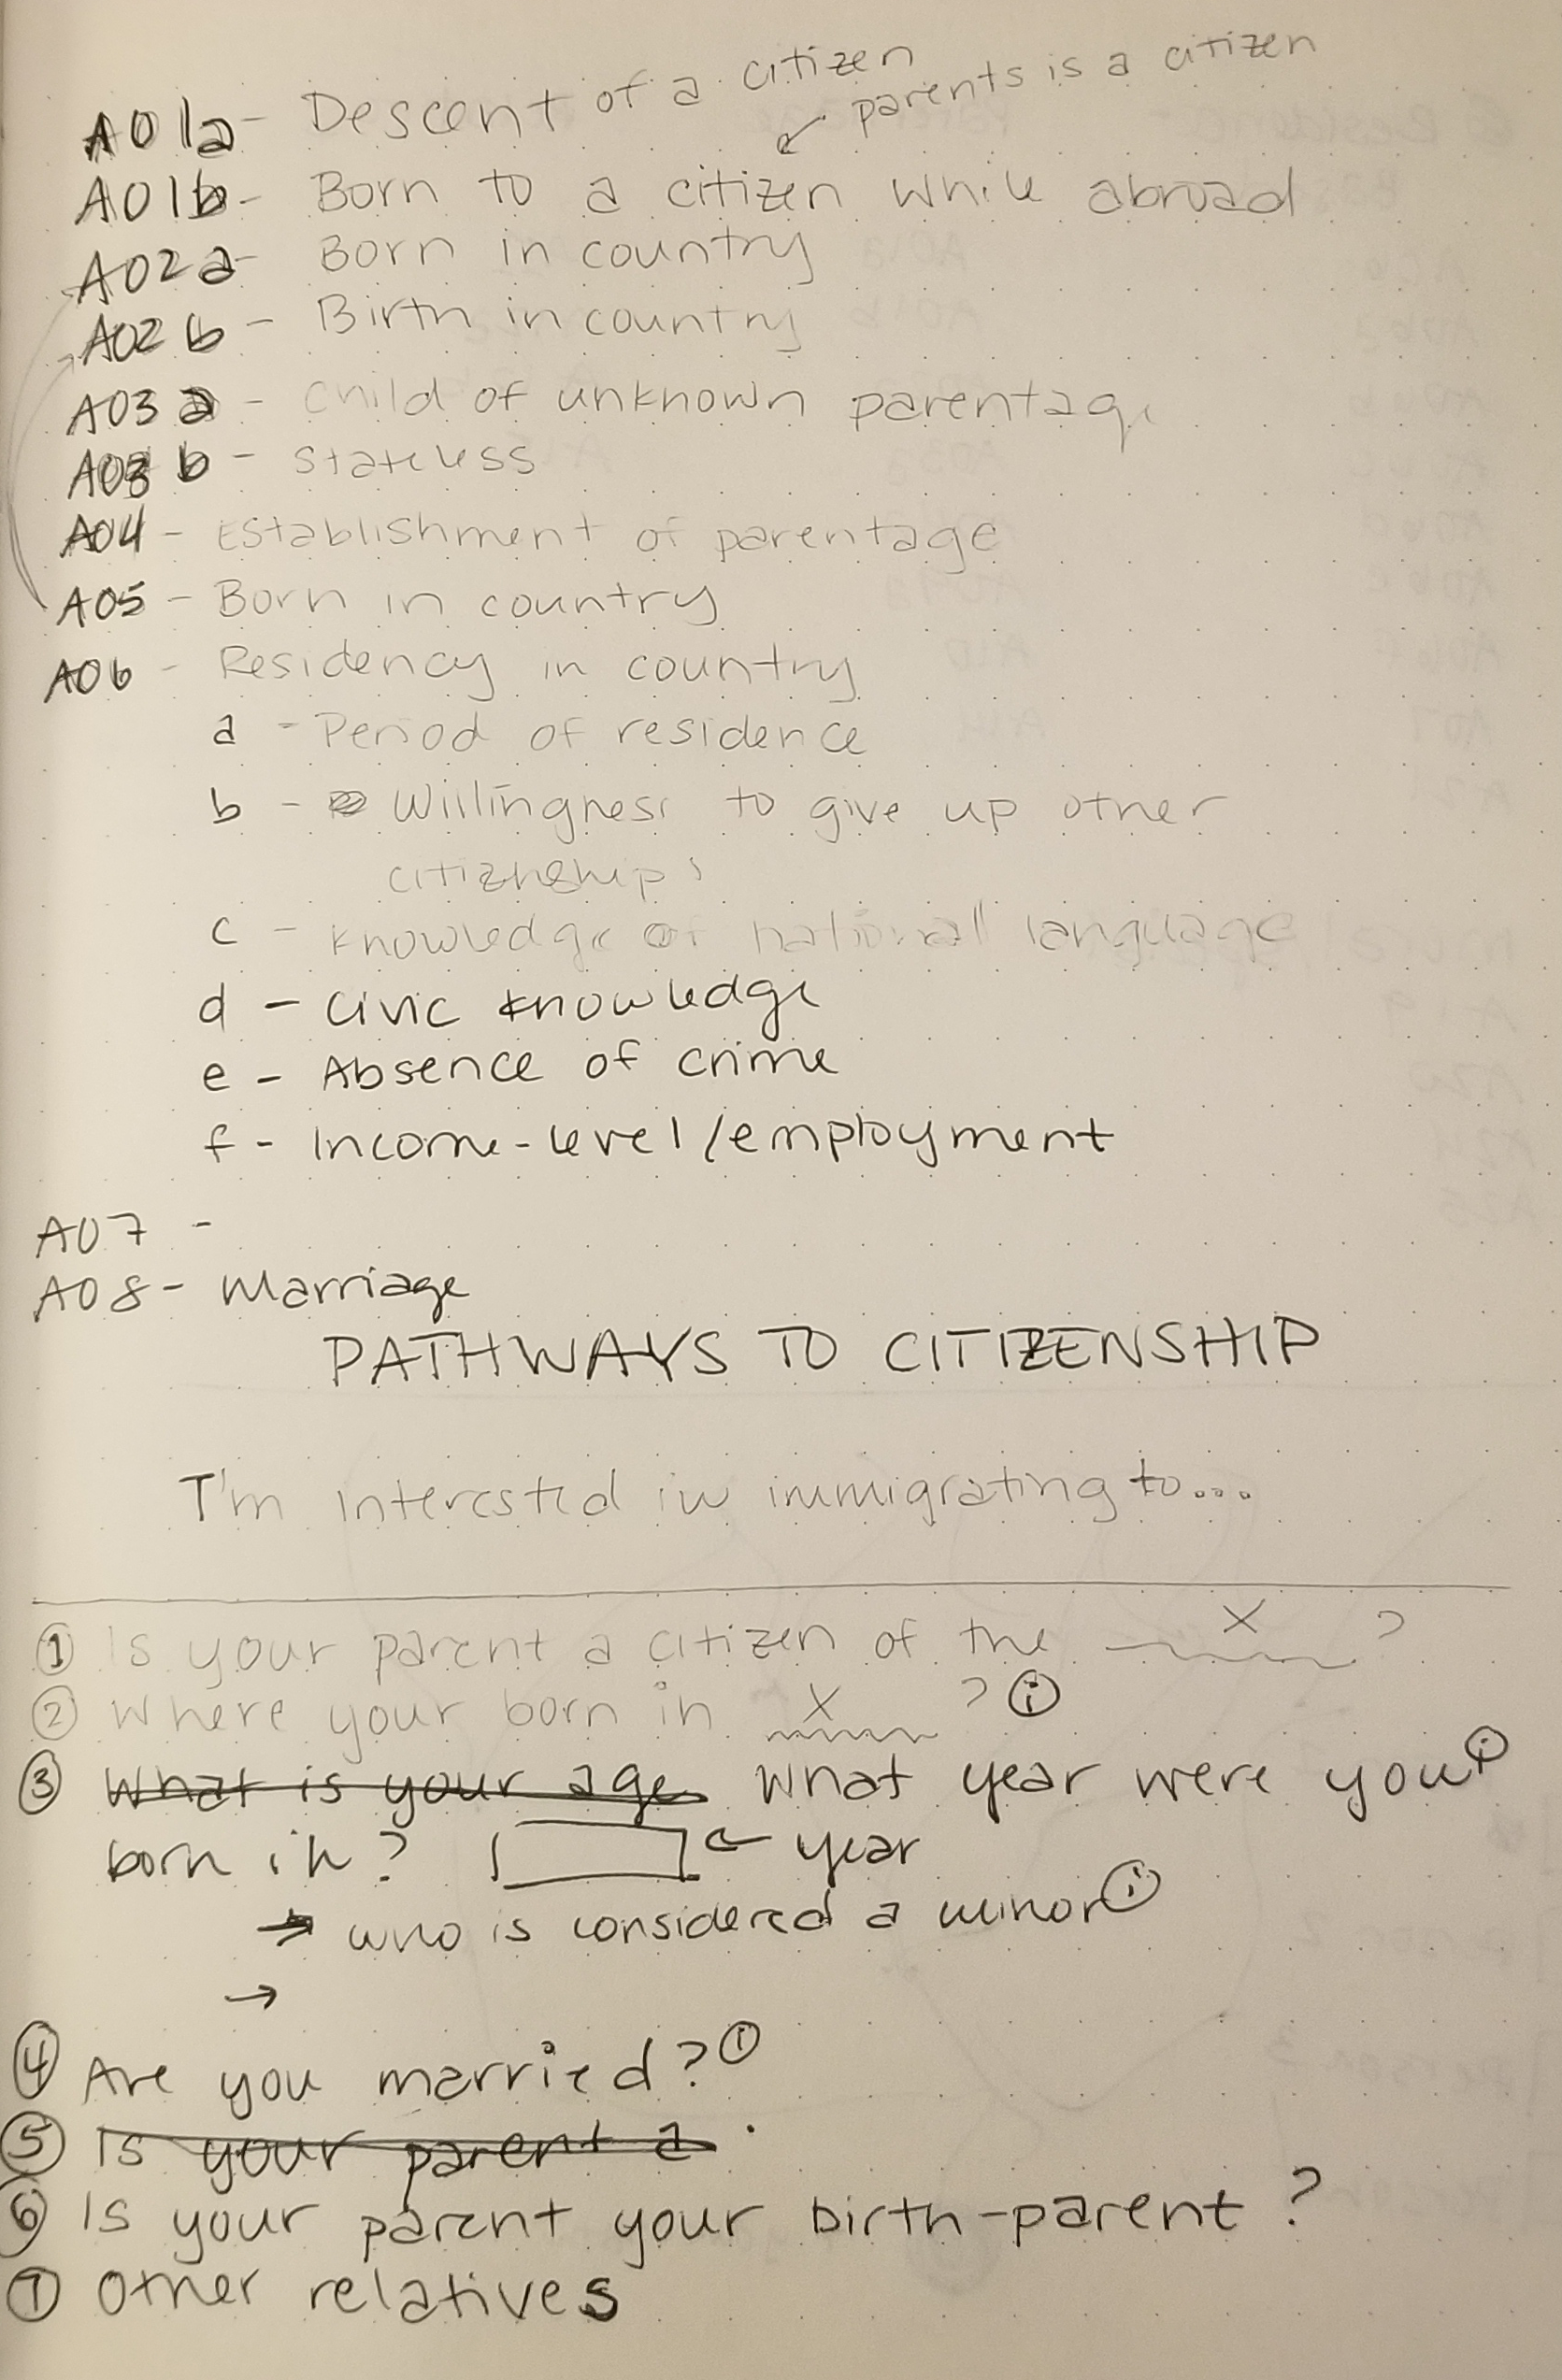 A01a - Descent of a citizen
parents is a citizen
A01b - Born to a citizen while abroad
A02a - Born in country
A02b - Birth in country
A03a - Child of unknown parentage
A03b - Stateless
A04 - Establishment of parentage
A05 - Born in country
A06 - Residency in country
a - Period of residence
b - Willingness to give up other
citizenships
c - Knowledge of national language
d - Civic knowledge
e - Absence of crime
f - Income-level/employment
A07 -
A08 - Marriage
PATHWAYS TO CITIZENSHIP
I'm interested in immigrating to...
① Is your parent a citizen of the X ?
② Where your born in X ? ⓘ
③ What is your age What year were you ⓘ
born in? ← year
→ who is considered a minor ⓘ
→
④ Are you married? ⓘ
⑤ Is your parent a
⑥ Is your parent your birth-parent?
⑦ Other relatives